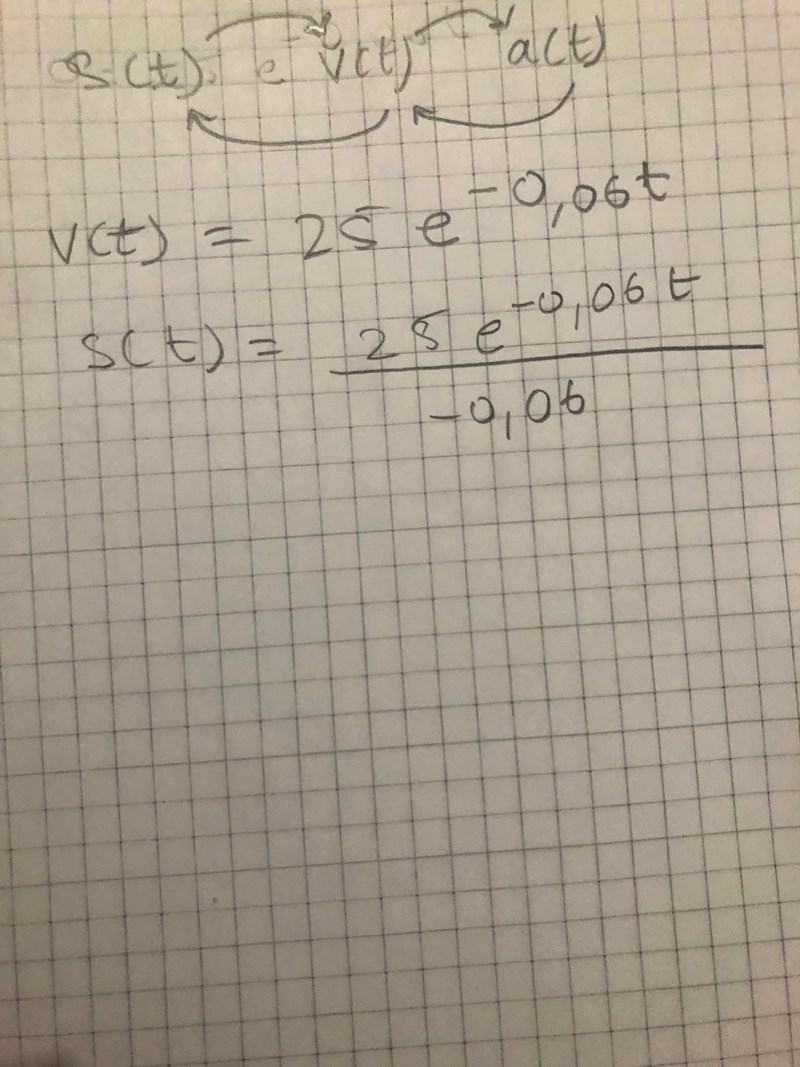 s(t) v(t) a(t)
v(t) = 25 e^-0,06t
s(t) = 25 e^-0,06 t
-0,06